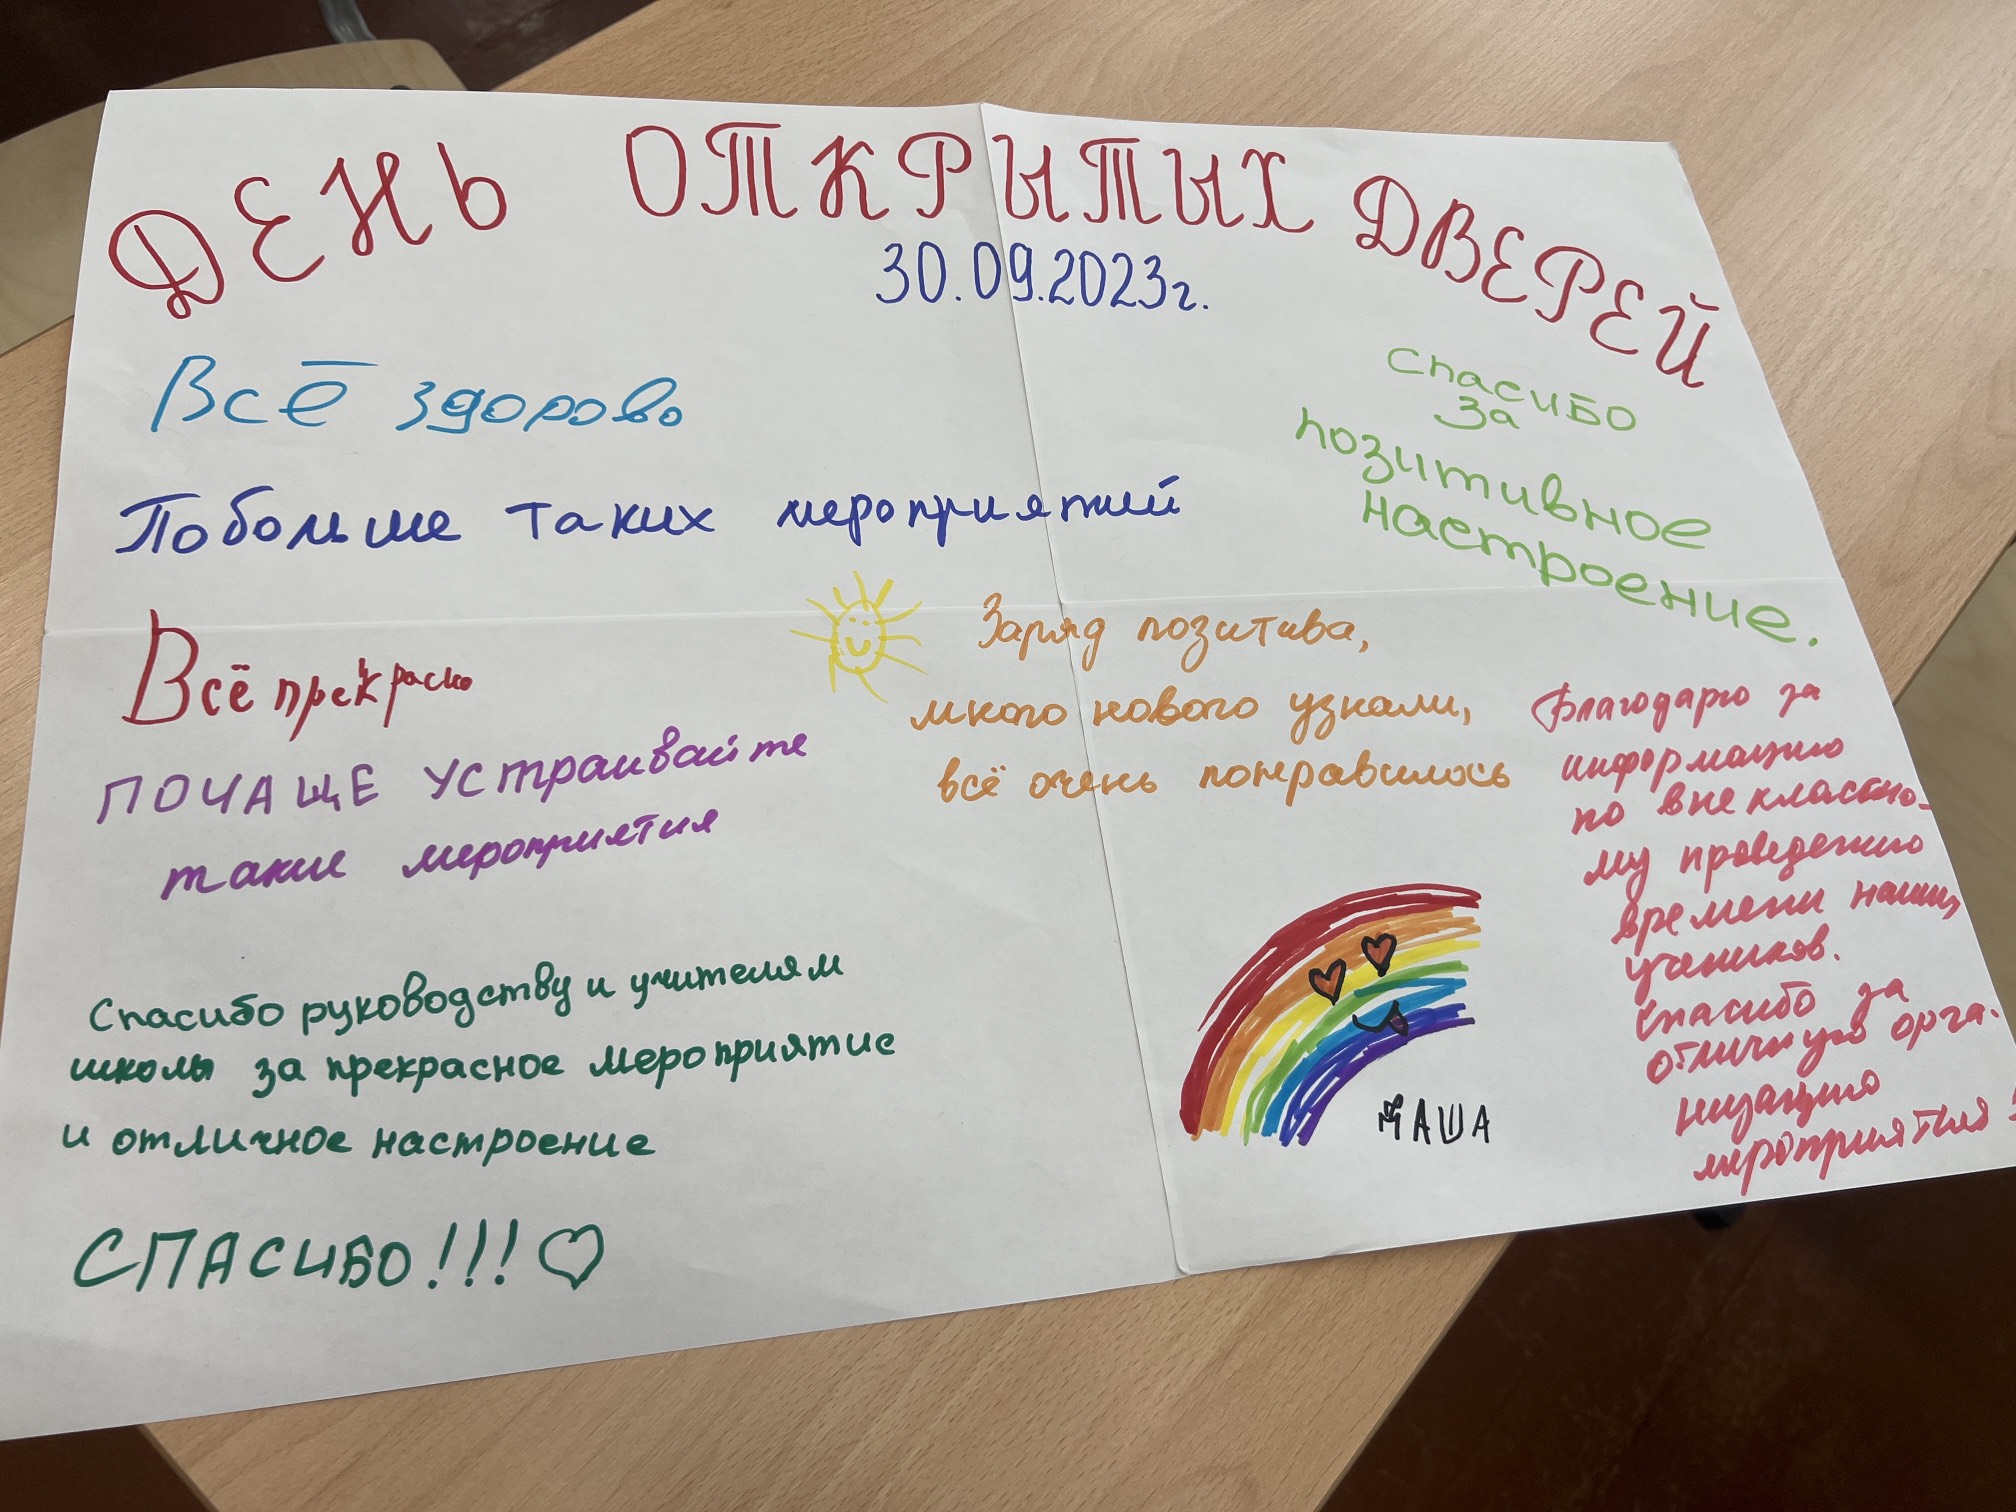 ДЕНЬ ОТКРЫТЫХ ДВЕРЕЙ
30.09.2023г.
Всё здорово
Побольше таких мероприятий
Спасибо
за
позитивное
настроение.
Всё прекрасно
ПОЧАЩЕ УСтраивайте
такие мероприятия
Заряд позитива,
много нового узнали,
всё очень понравилось
Благодарю за
информацию
по внеклассно-
му проведению
времени наших
учеников.
Спасибо за
отличную орга-
низацию
мероприятия
Спасибо руководству и учителям
школы за прекрасное мероприятие
и отличное настроение
СПАСИБО!!! ♡
МАША